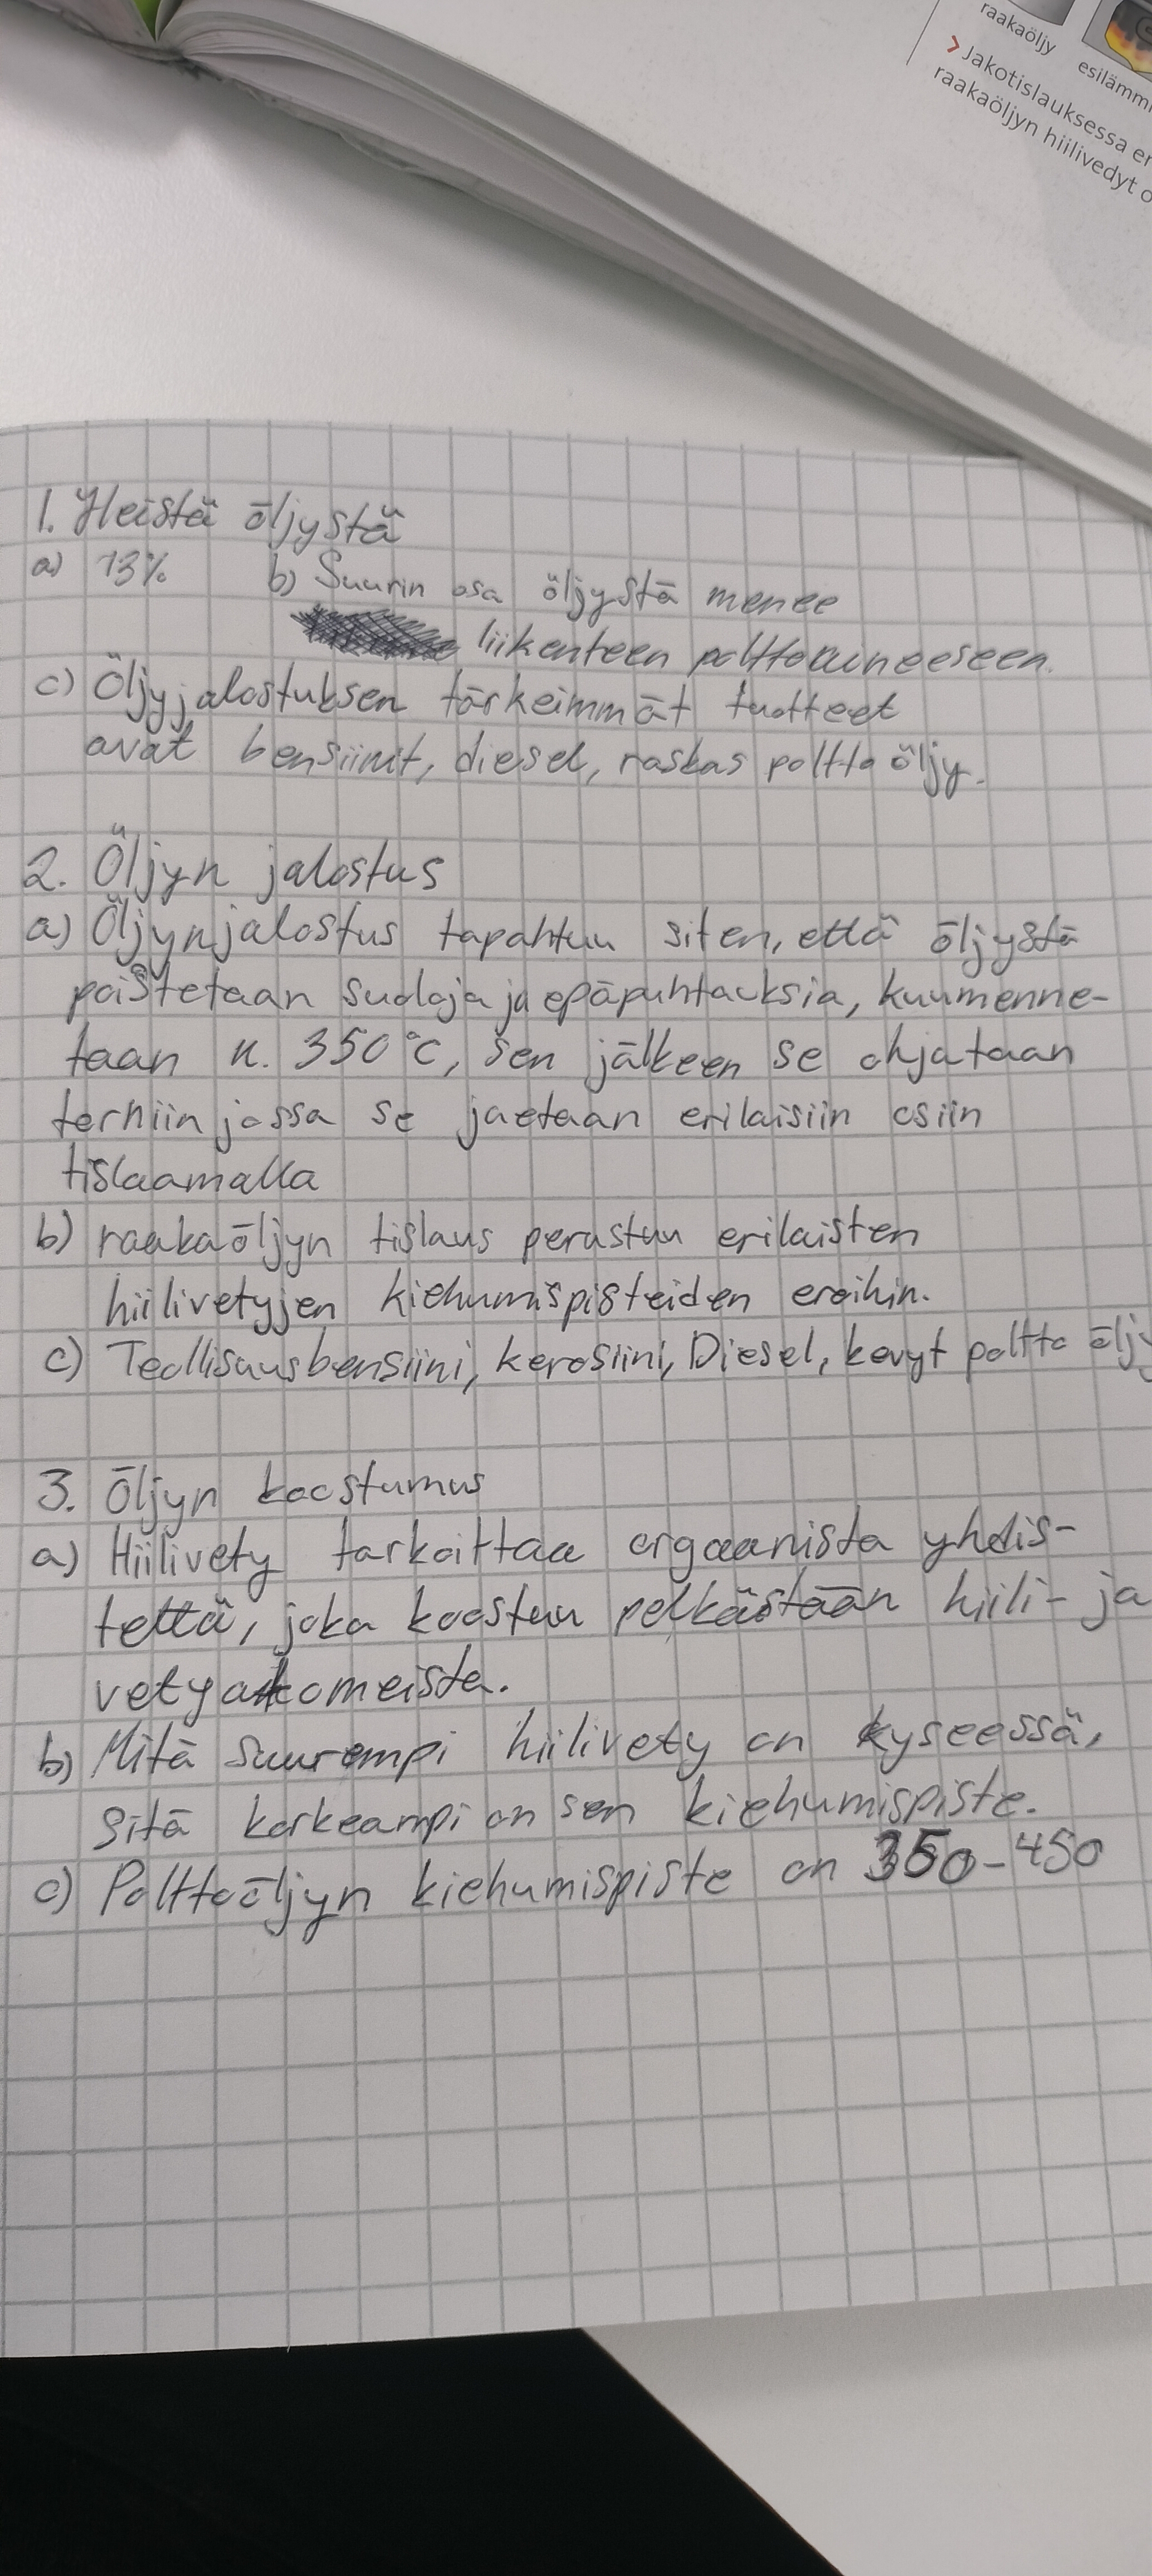 raakaöljy
esilämmi
> Jakotislauksessa er
raakaöljyn hiilivedyt o
1. Yleistä öljystä
a) 13% b) Suurin osa öljystä menee
liikenteen polttoaineeseen.
c) Öljyjalostuksen tärkeimmät tuotteet
ovat bensiinit, diesel, raskas poltto öljy.
2. Öljyn jalostus
a) Öljynjalostus tapahtuu siten, että öljystä
poistetaan suoloja ja epäpuhtauksia, kuumenne-
taan n. 350°C, sen jälkeen se ohjataan
torniin jossa se jaetaan erilaisiin osiin
tislaamalla
b) raakaöljyn tislaus perustuu erilaisten
hiilivetyjen kiehumispisteiden eroihin.
c) Teollisuusbensiini, kerosiini, Diesel, kevyt poltto öljy
3. Öljyn koostumus
a) Hiilivety tarkoittaa orgaanista yhdis-
tettä, joka koostuu pelkästään hiili- ja
vetyatomeista.
b) Mitä suurempi hiilivety on kyseessä,
sitä korkeampi on sen kiehumispiste.
c) Polttoöljyn kiehumispiste on 350-450